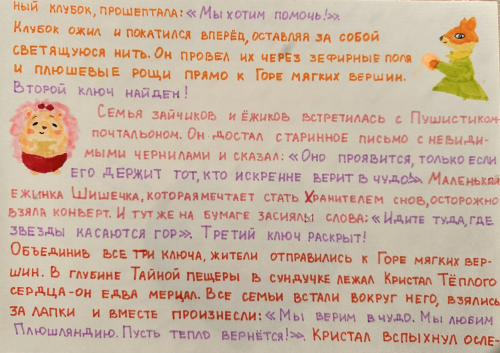 ный клубок, прошептала: «Мы хотим помочь!».
Клубок ожил и покатился вперёд, оставляя за собой
светящуюся нить. Он провел их через зефирные поля
и плюшевые рощи прямо к Горе мягких вершин.
Второй ключ найден!
Семья зайчиков и ёжиков встретилась с Пушистиком-
почтальоном. Он достал старинное письмо с невиди-
мыми чернилами и сказал: «Оно проявится, только если
его держит тот, кто искренне верит в чудо!». Маленькая
ежинка Шишечка, которая мечтает стать Хранителем снов, осторожно
взяла конверт. И тут же на бумаге засияли слова: «Идите туда, где
звезды касаются гор». Третий ключ раскрыт!
Объединив все три ключа, жители отправились к Горе мягких вер-
шин. В глубине Тайной пещеры в сундучке лежал Кристал Тёплого
сердца-он едва мерцал. Все семьи встали вокруг него, взялись
за лапки и вместе произнесли: «Мы верим в чудо. Мы любим
Плюшляндию. Пусть тепло вернётся!». Кристал вспыхнул осле-